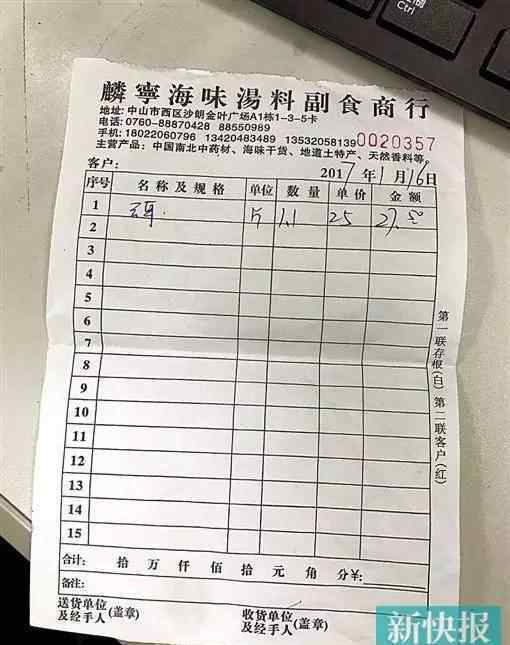 Ctrl
麟寧海味湯料副食商行
地址: 中山市西区沙朗金叶广场A1栋1-3-5卡
电话: 0760-88870428 88550989
手机: 18022060796 13420483489 13532058139 0020357
主营产品: 中国南北中药材、海味干货、地道土特产、天然香料等
客户: 2017年1月16日
序号 名称及规格 单位 数量 单价 金额
1 斤 1.1 25 27.5
2
3
4
5
6
7
8
9
10
11
12
13
14
15
合计: 拾 万 仟 佰 拾 元 角 分¥:
备注:
送货单位及经手人(盖章) 收货单位及经手人(盖章)
第一联存根(白) 第二联客户(红)
新快报